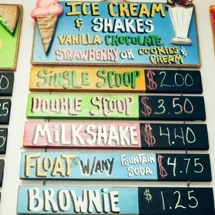 ICE CREAM
& SHAKES
VANILLA CHOCOLATE
STRAWBERRY OR COOKIES &
CREAM
SINGLE SCOOP $2.00
DOUBLE SCOOP $3.50
MILKSHAKE $4.40
FLOAT W/ANY FOUNTAIN SODA $4.75
BROWNIE $1.25